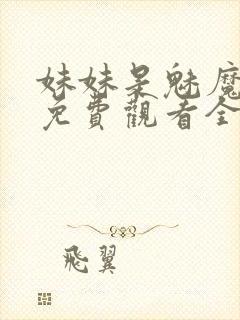 妹妹是魅魔
免費觀看全
飛翼